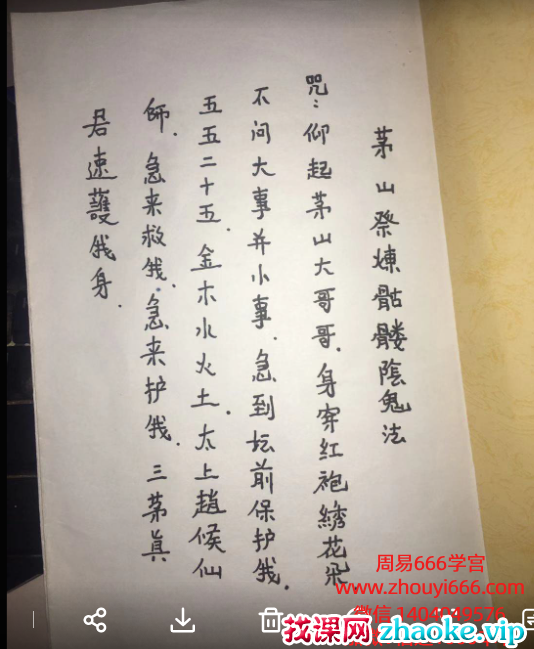 茅山祭煉骷髅陰鬼法
咒:仰起茅山大哥哥.身穿红袍繡花飛
不问大事并小事.急到坛前保护俄.
五五二十五.金木水火土.太上趙候仙
師.急来救俄.急来护俄.三茅真
君速護俄身.
周易666学宫
www.zhouyi666.com
微信 1404049576
找课网zhaoke.vip